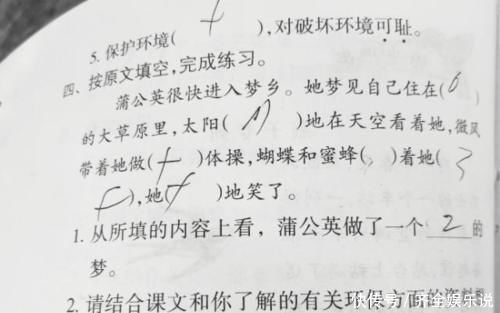 5. 保护环境( ),对破坏环境可耻。
四、按原文填空,完成练习。
蒲公英很快进入梦乡。她梦见自己住在(6)
的大草原里,太阳( )地在天空看着她,微风
带着她做( )体操,蝴蝶和蜜蜂( )着她(3
),她( )地笑了。
1. 从所填的内容上看,蒲公英做了一个 2 的
梦。
2. 请结合课文和你了解的有关环保方面的资料
快传号/齐全娱乐说